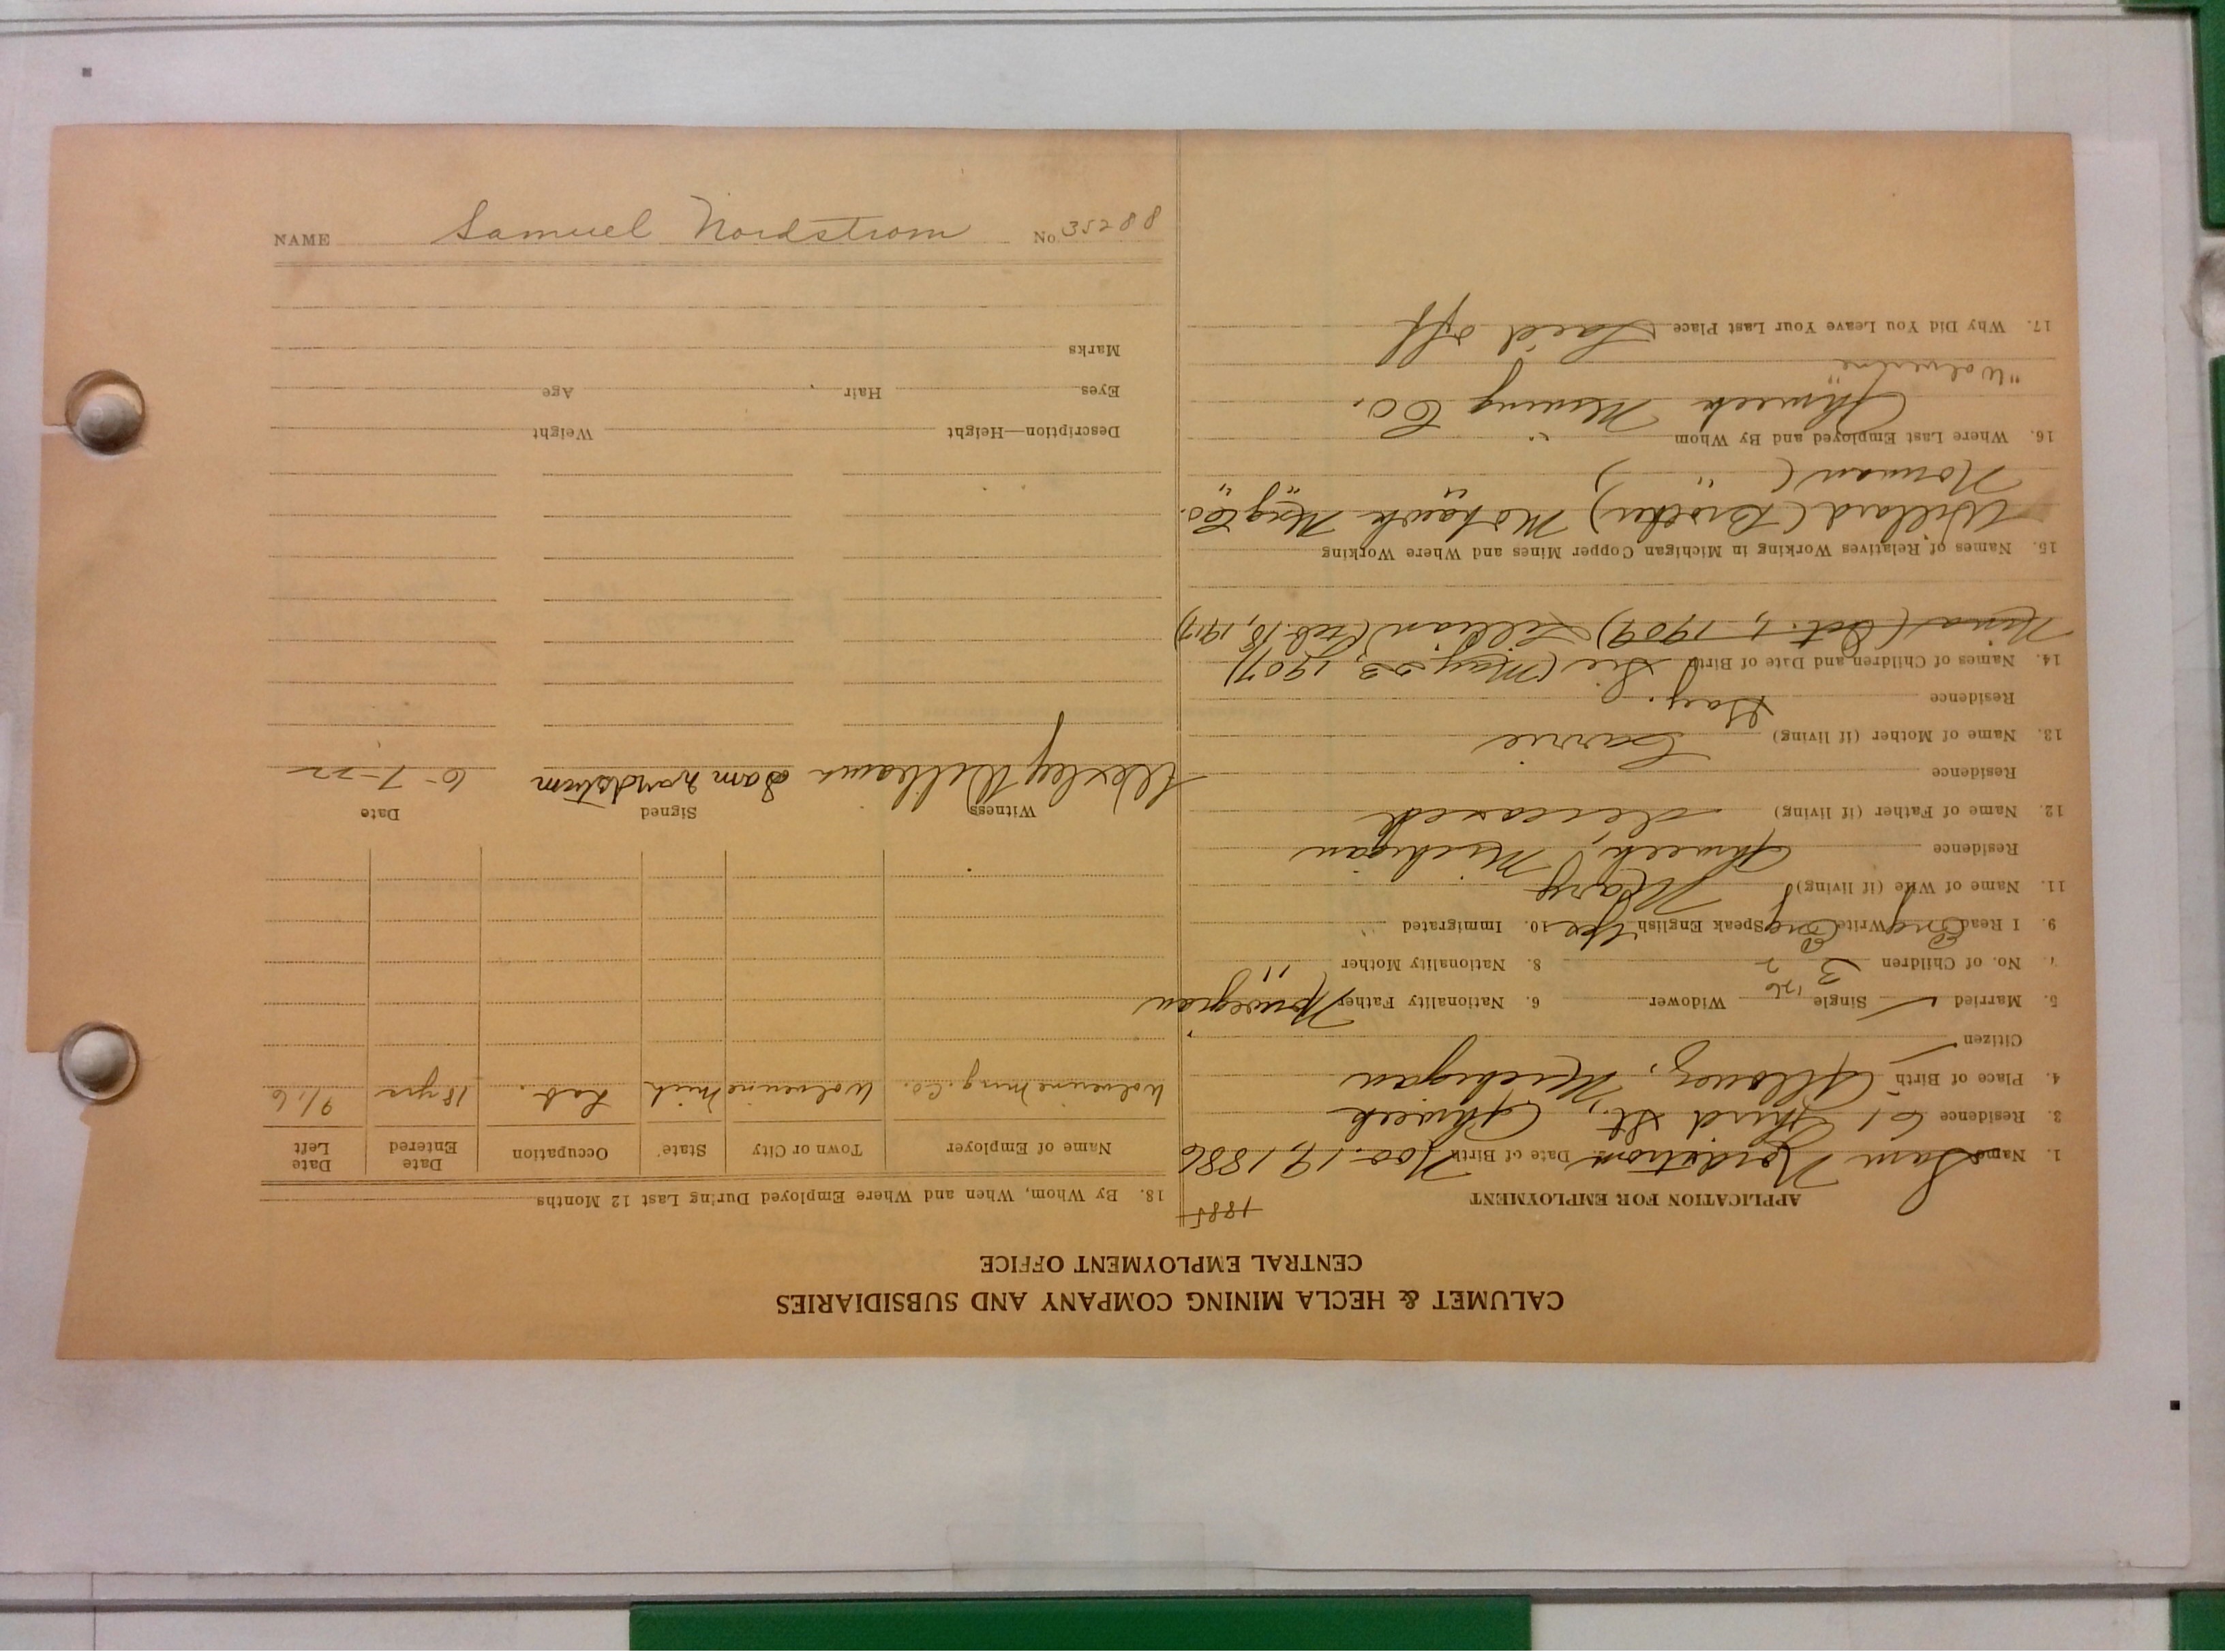 CALUMET & HECLA MINING COMPANY AND SUBSIDIARIES
CENTRAL EMPLOYMENT OFFICE
APPLICATION FOR EMPLOYMENT
1885
1. Name Sam Nordstrom 2. Date of Birth Nov. 19, 1886
3. Residence 61 Third St., Ahmeek
4. Place of Birth Allouez, Michigan
Citizen
5. Married ✓ Single '26 Widower 6. Nationality Father Norwegian
7. No. of Children 3 2 8. Nationality Mother " "
9. I Read Eng Write Eng Speak English Yes 10. Immigrated
11. Name of Wife (if living) Mary
Residence Ahmeek, Michigan
12. Name of Father (if living) deceased
Residence
13. Name of Mother (if living) Carrie
Residence Gay.
14. Names of Children and Date of Birth (May 23, 1907)
(Oct. 1, 1909) Lillian (Feb. 18, 1917)
15. Names of Relatives Working in Michigan Copper Mines and Where Working
Willard (Brother) Mohawk Mng Co.
Norman ( " ) " " "
16. Where Last Employed and By Whom
Ahmeek Mining Co.
"Wolverine"
17. Why Did You Leave Your Last Place Laid off
18. By Whom, When and Where Employed During Last 12 Months
Name of Employer Town or City State Occupation Date Entered Date Left
Wolverine Mng. Co. Wolverine Mich Lab. 18 yrs 9/16
Witness Signed Date
Wexley Williams Sam nordstrom 6-7-22
Description—Height Weight
Eyes Hair Age
Marks
NAME Samuel Nordstrom No. 35288